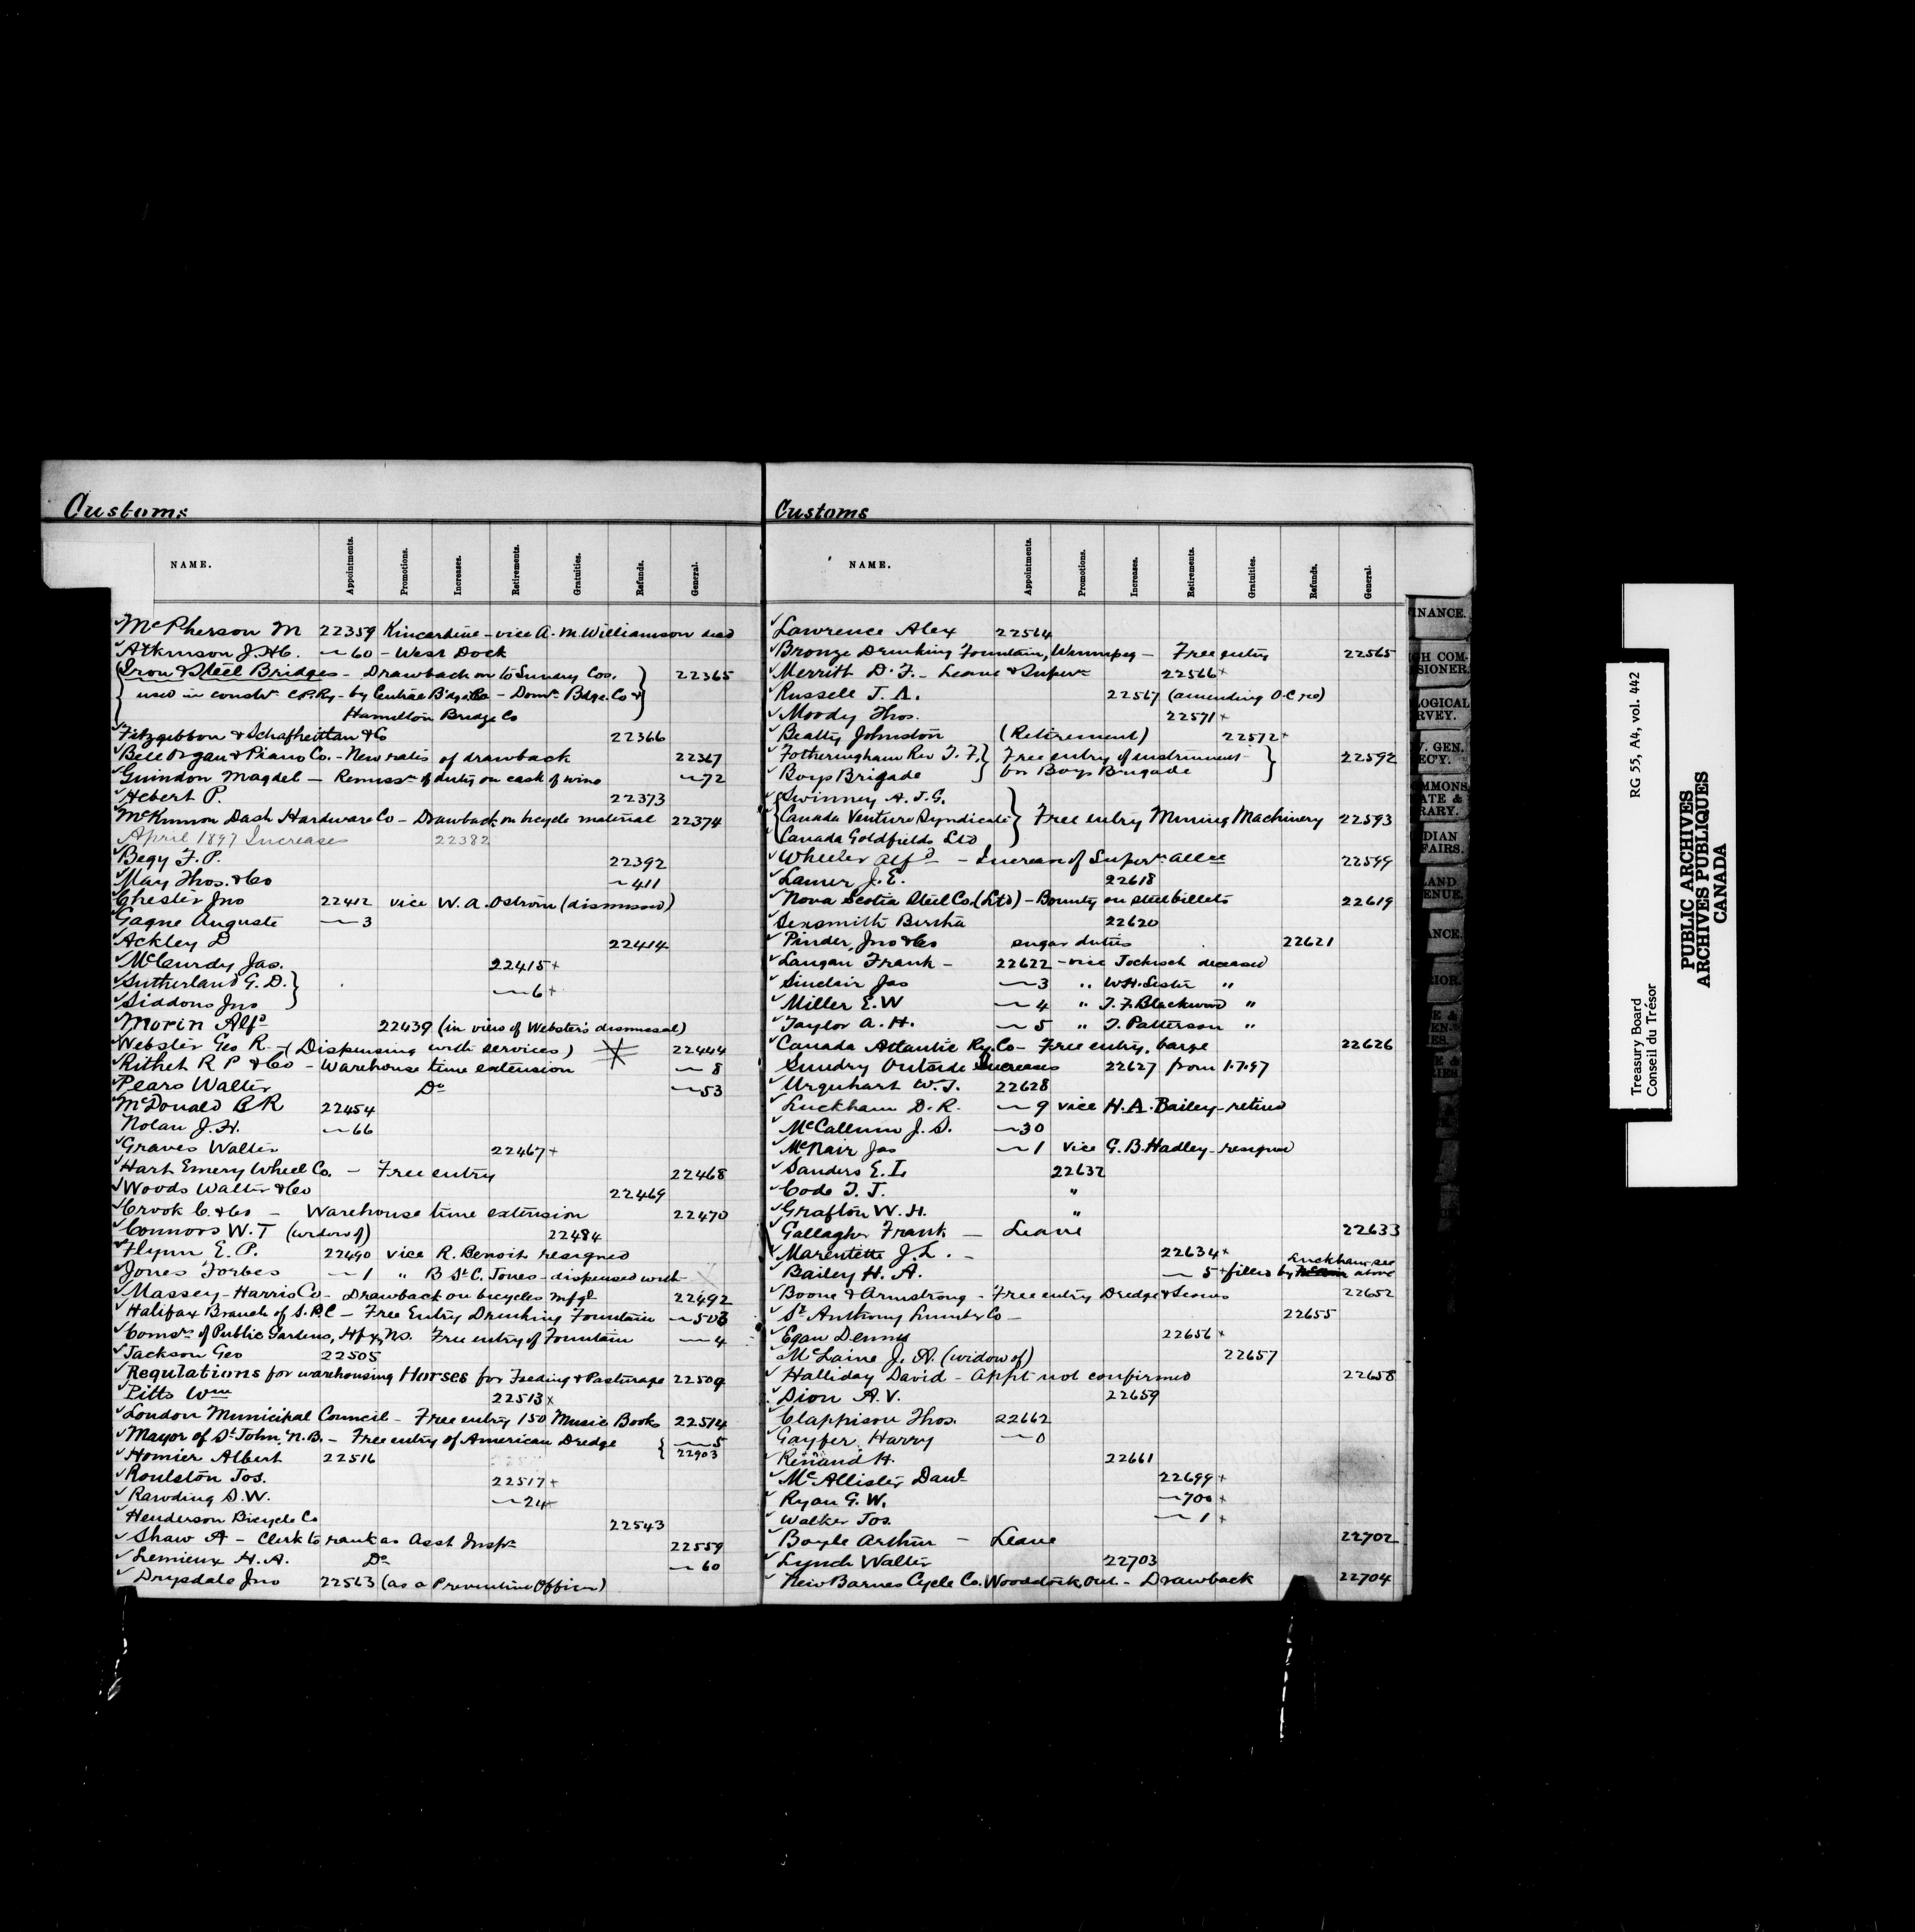 Customs
NAME. Appointments. Promotions. Increases. Retirements. Gratuities. Refunds. General.
✓McPherson M 22359 Kincardine - vice A. M. Williamson dead
✓Atkinson J. H. C. 〃60 - West Dock
Iron & Steel Bridges - Drawback on to Sundry Cos. 22365
used in constn. C.P.Ry - by Central Bdge Co - Domn. Bdge. Co &
Hamilton Bridge Co
✓Fitzgibbon & Schafheitlin & Co 22366
✓Bell Organ & Piano Co. - New rates of drawback 22367
✓Guindon Magdel - Remissn of duty on cask of wine 〃72
✓Hebert P. 22373
✓McKinnon Dash Hardware Co - Drawback on bicycle material 22374
April 1897 Increases 22382
✓Begy F. P. 22392
✓May Thos. & Co 〃411
✓Chester Jno 22412 vice W. A. Ostrom (dismissed)
✓Gagne Auguste 〃3
✓Ackley D 22414
✓McCurdy Jas. 22415+
✓Sutherland G. D. } 〃6+
✓Siddons Jno
✓Morin Alfd 22439 (in view of Webster's dismissal)
✓Webster Geo R. - (Dispensing with services) 22444
✓Rithet R P & Co - Warehouse time extension 〃8
✓Pears Walter Do 〃53
✓McDonald B R 22454
Nolan J. H. 〃66
✓Graves Walter 22467+
✓Hart Emery Wheel Co. - Free entry 22468
✓Woods Walter & Co 22469
✓Crook C. & Co - Warehouse time extension 22470
✓Connors W. T (widow of) 22484
✓Flynn E. P. 22490 vice R. Benoit resigned
✓Jones Forbes 〃1 " B St C. Jones - dispensed with
✓Massey-Harris Co - Drawback on bicycles mfgd 22492
✓Halifax Branch of S.P.C - Free Entry Drinking Fountain 〃503
✓Comsr. of Public Gardens, Hfx, NS. Free entry of Fountain 〃4
✓Jackson Geo 22505
✓Regulations for warehousing Horses for Feeding & Pasturage 22509
✓Pitts Wm 22513x
✓London Municipal Council - Free entry 150 Music Books 22514
✓Mayor of St John, N.B. - Free entry of American Dredge { 〃5
22903
✓Homier Albert 22516
✓Roulston Jos. 22517+
✓Rawding S. W. 〃24+
✓Henderson Bicycle Co 22543
✓Shaw A - Clerk to rank as Asst Inspr 22559
✓Lemieux H. A. Do 〃60
✓Drysdale Jno 22563 (as a Preventive Officer)
Customs
NAME. Appointments. Promotions. Increases. Retirements. Gratuities. Refunds. General.
✓Lawrence Alex 22564
✓Bronze Drinking Fountain, Winnipeg - Free entry 22565
✓Merritt D. F. - Leave & Supern 22566+
✓Russell J. A. 22567 (amending O.C.)
✓Moody Thos. 22571+
✓Beatty Johnston (Retirement) 22572+
✓Fotheringham Rev T. F. } Free entry of instruments } 22592
✓Boys Brigade for Boys Brigade
✓Swinney A. J. G.
✓Canada Venture Syndicate } Free entry Mining Machinery 22593
✓Canada Goldfields Ltd
✓Wheeler Alfd - Increase of Supern allce 22599
✓Lamer J. E. 22618
✓Nova Scotia Steel Co. (Ltd) - Bounty on steel billets 22619
✓Sensmith Bertha 22620
✓Pinder, Jno & Co sugar duties 22621
✓Langan Frank - 22622 - vice Jockisch deceased
✓Sinclair Jas 〃3 " W. H. Lester "
✓Miller E. W 〃4 " J. F. Blackwood "
✓Taylor A. H. 〃5 " J. Patterson "
✓Canada Atlantic Ry. Co - Free entry, barge 22626
✓Sundry Outside Increases 22627 from 1.7.97
✓Urquhart W. J. 22628
✓Luckham D. R. 〃9 vice H. A. Bailey - retired
✓McCallum J. S. 〃30
✓McNair Jas 〃1 vice G. B. Hadley - resigned
✓Sanders E. L. 22632
✓Code T. J. "
✓Grafton W. H. "
Gallagher Frank - Leave 22633
✓Marentette J. L. - 22634+
✓Bailey H. A. 〃5+ filled by Luckham see above
✓Boone & Armstrong - Free entry Dredge & Scows 22652
✓St Anthony Lumber Co - 22655
✓Egan Dennis 22656+
✓McLaine J. A. (widow of) 22657
✓Halliday David - Appt not confirmed 22658
✓Dion A. V. 22659
✓Clappison Thos. 22662
✓Gayfer Harry 〃0
✓Renaud H. 22661
✓McAllister Danl 22699+
✓Ryan G. W. 〃700+
✓Walker Jos. 〃1+
✓Boyle Arthur - Leave 22702
✓Lynch Walter 22703
✓New Barnes Cycle Co. Woodstock, Ont. - Drawback 22704
INANCE.
GH COM-
SIONER.
LOGICAL
RVEY.
V. GEN.
EC'Y.
MMONS
ATE &
RARY.
DIAN
FAIRS.
LAND
ENUE.
ANCE.
IOR.
Treasury Board
Conseil du Trésor
RG 55, A4, vol. 442
PUBLIC ARCHIVES
ARCHIVES PUBLIQUES
CANADA